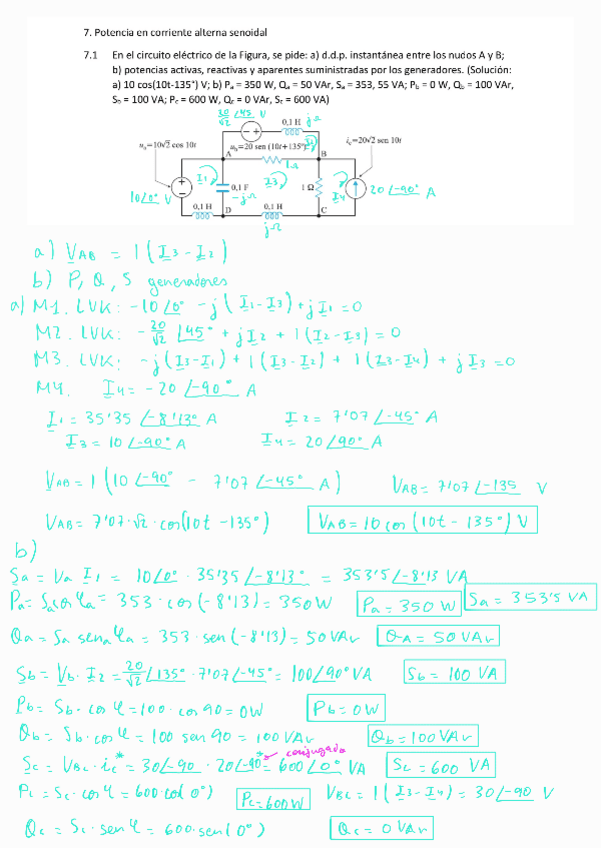 7. Potencia en corriente alterna senoidal
7.1 En el circuito eléctrico de la Figura, se pide: a) d.d.p. instantánea entre los nudos A y B;
b) potencias activas, reactivas y aparentes suministradas por los generadores. (Solución:
a) 10 cos(10t-135°) V; b) Pₐ = 350 W, Qₐ = 50 VAr, Sₐ = 353, 55 VA; P_b = 0 W, Q_b = 100 VAr,
S_b = 100 VA; P_c = 600 W, Q_c = 0 VAr, S_c = 600 VA)
20/√2 ∠45° V
0,1 H jΩ
uₐ=10√2 cos 10t
A
u_b=20 sen (10t+135°)
B
i_c=20√2 sen 10t
1Ω
I1
I2
I3
I4
0,1 F
-jΩ
1 Ω
10∠0° V
20∠-90° A
0,1 H
D
0,1 H
C
jΩ
a) VAB = 1 (I3 - I2)
b) P, Q, S generadores
a) M1. LVK: -10∠0° - j(I1-I3) + jI1 = 0
M2. LVK: - 20/√2 ∠45° + jI2 + 1(I2-I3) = 0
M3. LVK: -j(I3-I1) + 1(I3-I2) + 1(I3-I4) + jI3 = 0
M4. I4 = -20∠-90° A
I1 = 35'35∠-8'13° A I2 = 7'07∠-45° A
I3 = 10∠-90° A I4 = 20∠90° A
VAB = 1 (10∠-90° - 7'07∠-45° A) VAB = 7'07∠-135 V
VAB = 7'07·√2·cos(10t-135°) VAB = 10 cos (10t - 135°) V
b)
Sa = Va I1 = 10∠0° · 35'35∠-8'13° = 353'5∠-8'13 VA
Pa = Sa cos φa = 353·cos(-8'13) = 350W Pa = 350 W Sa = 353'5 VA
Qa = Sa sena φa = 353·sen(-8'13) = 50VAr QA = 50 VAr
Sb = Vb·I2 = 20/√2 ∠135°·7'07∠-45° = 100∠90° VA Sb = 100 VA
Pb = Sb·cos φ = 100·cos 90 = 0W Pb = 0W
Qb = Sb·cos φ = 100 sen 90 = 100 VAr Qb = 100 VAr
conjugado
Sc = VBC·ic* = 30∠-90 · 20∠-90* = 600∠0° VA Sc = 600 VA
Pc = Sc·cos φ = 600·cos(0°) Pc = 600W VBC = 1(I3-I4) = 30∠-90 V
Qc = Sc·sen φ = 600·sen(0°) Qc = 0 VAr